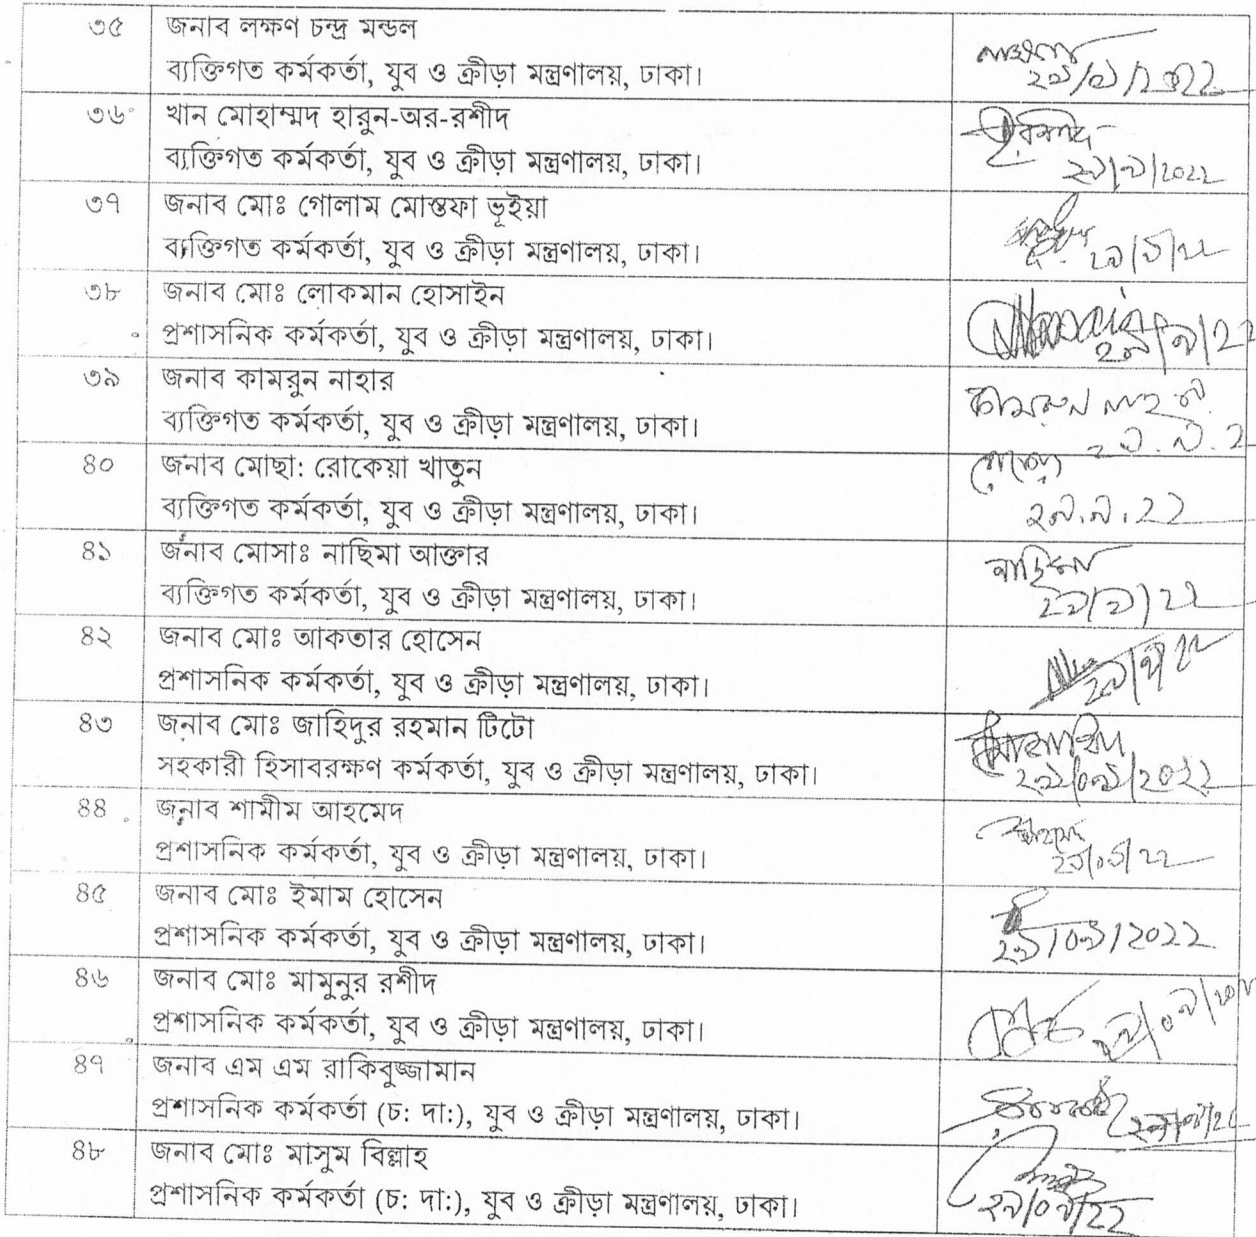 ৩৫ জনাব লক্ষণ চন্দ্র মন্ডল
ব্যক্তিগত কর্মকর্তা, যুব ও ক্রীড়া মন্ত্রণালয়, ঢাকা।
৩৬ খান মোহাম্মদ হারুন-অর-রশীদ
ব্যক্তিগত কর্মকর্তা, যুব ও ক্রীড়া মন্ত্রণালয়, ঢাকা।
৩৭ জনাব মোঃ গোলাম মোস্তফা ভূইয়া
ব্যক্তিগত কর্মকর্তা, যুব ও ক্রীড়া মন্ত্রণালয়, ঢাকা।
৩৮ জনাব মোঃ লোকমান হোসাইন
প্রশাসনিক কর্মকর্তা, যুব ও ক্রীড়া মন্ত্রণালয়, ঢাকা।
৩৯ জনাব কামরুন নাহার
ব্যক্তিগত কর্মকর্তা, যুব ও ক্রীড়া মন্ত্রণালয়, ঢাকা।
৪০ জনাব মোছা: রোকেয়া খাতুন
ব্যক্তিগত কর্মকর্তা, যুব ও ক্রীড়া মন্ত্রণালয়, ঢাকা। ২৯.৯.২২
৪১ জনাব মোসাঃ নাছিমা আক্তার
ব্যক্তিগত কর্মকর্তা, যুব ও ক্রীড়া মন্ত্রণালয়, ঢাকা। ২৯/৯/২২
৪২ জনাব মোঃ আকতার হোসেন
প্রশাসনিক কর্মকর্তা, যুব ও ক্রীড়া মন্ত্রণালয়, ঢাকা। ২৯/৯/২২
৪৩ জনাব মোঃ জাহিদুর রহমান টিটো
সহকারী হিসাবরক্ষণ কর্মকর্তা, যুব ও ক্রীড়া মন্ত্রণালয়, ঢাকা। ২৯/০৯/২০২২
৪৪ জনাব শামীম আহমেদ
প্রশাসনিক কর্মকর্তা, যুব ও ক্রীড়া মন্ত্রণালয়, ঢাকা। ২৯/০৯/২২
৪৫ জনাব মোঃ ইমাম হোসেন
প্রশাসনিক কর্মকর্তা, যুব ও ক্রীড়া মন্ত্রণালয়, ঢাকা। ২৯/০৯/২০২২
৪৬ জনাব মোঃ মামুনুর রশীদ
প্রশাসনিক কর্মকর্তা, যুব ও ক্রীড়া মন্ত্রণালয়, ঢাকা।
৪৭ জনাব এম এম রাকিবুজ্জামান
প্রশাসনিক কর্মকর্তা (চ: দা:), যুব ও ক্রীড়া মন্ত্রণালয়, ঢাকা।
৪৮ জনাব মোঃ মাসুম বিল্লাহ
প্রশাসনিক কর্মকর্তা (চ: দা:), যুব ও ক্রীড়া মন্ত্রণালয়, ঢাকা। ২৯/০৯/২২